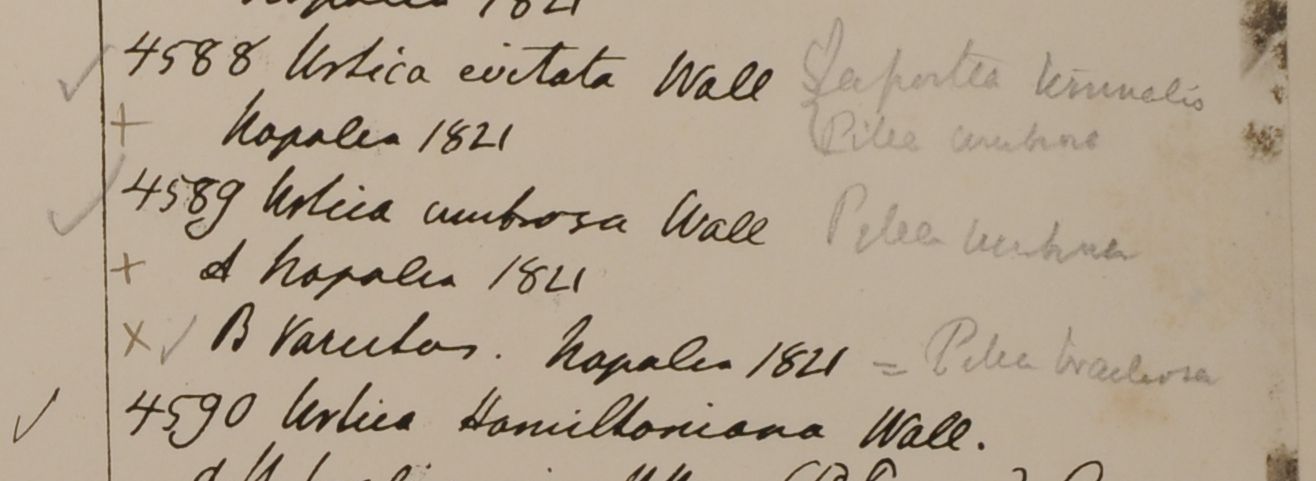 Napalia 1821
4588 Urtica evitata Wall Laportea terminalis
Napalia 1821 Pilea umbrosa
4589 Urtica umbrosa Wall Pilea umbrosa
A Napalia 1821
B Varietas. Napalia 1821 = Pilea bracteosa
4590 Urtica Hamiltoniana Wall.